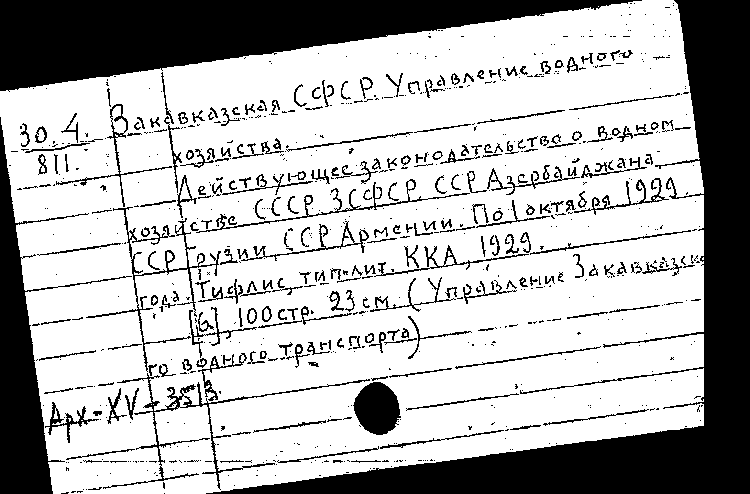 30.4. Закавказская СФСР. Управление водного
811. хозяйства.
Действующее законодательство о водном
хозяйстве СССР. ЗСФСР. ССР Азербайджана,
ССР Грузии, ССР Армении. По 1 октября 1929.
года. Тифлис, тип-лит. ККА, 1929.
[6], 100 стр. 23 см. (Управление Закавказско
го водного транспорта)
Арх-XV-3513.